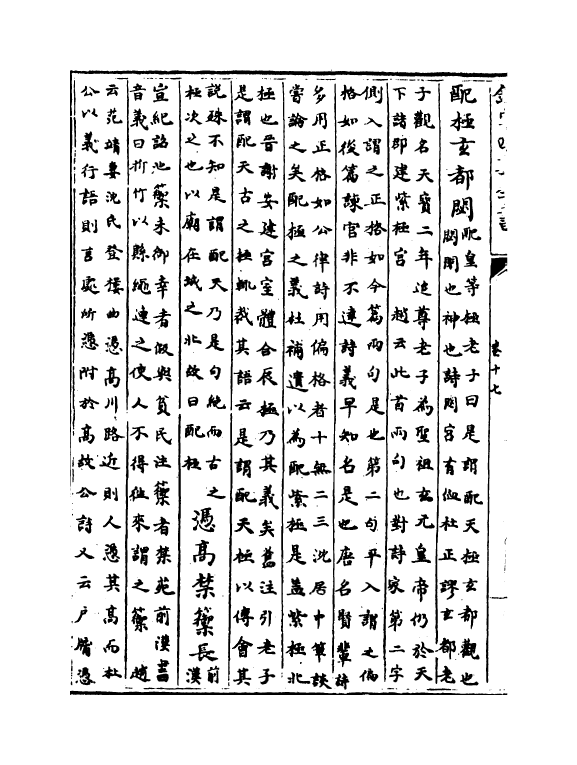 配極玄都閟
配皇等極老子曰是謂配天極玄都觀也
閟閉也神也詩閟宮有侐杜正謬玄都老
子觀名天寶二年追尊老子為聖祖玄元皇帝仍於天
下諸郡建紫極宮　趙云此首兩句也對詩家第二字
側入謂之正格如今篇兩句是也第二句平入謂之偏
格如後篇諫官非不達詩義早知名是也唐名賢輩詩
多用正格如公律詩用偏格者十無二三沈居中筆談
嘗論之矣配極之義杜補遺以為配紫極是蓋紫極北
極也晉謝安建宮室體合辰極乃其義矣舊注引老子
是謂配天古之極輒裁其語云是謂配天極以傅會其
說殊不知是謂配天乃是句絕而古之
極次之也以廟在城之北故曰配極
憑高禁籞長
前
漢
宣紀詔池籞未御幸者假與貧民注籞者禁苑前漢書
音義曰折竹以縣繩連之使人不得往來謂之籞　趙
云范靖妻沈氏登樓曲憑高川路近則人憑其高而杜
公以義行語則言處所憑附於高故公詩又云戶牖憑
卷十七